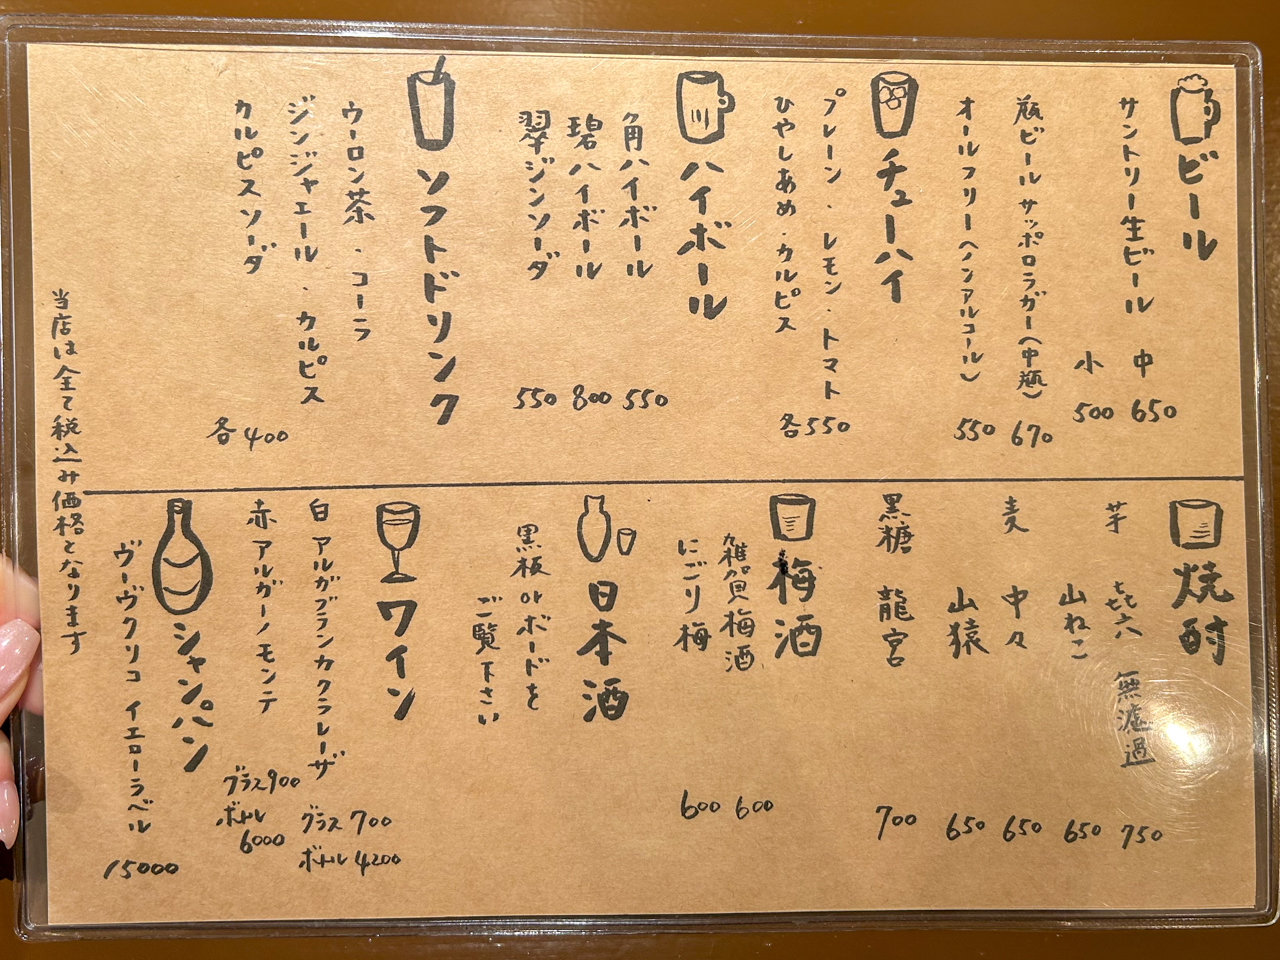 ビール
サントリー生ビール 中 650
小 500
瓶ビール サッポロラガー(中瓶) 670
オールフリー(ノンアルコール) 550
チューハイ
プレーン・レモン・トマト
ひやしあめ・カルピス 各550
ハイボール
角ハイボール 550
碧ハイボール 800
翠ジンソーダ 550
ソフトドリンク
ウーロン茶・コーラ
ジンジャエール・カルピス
カルピスソーダ 各400
焼酎
芋 㐂六 無濾過 750
山ねこ 650
麦 中々 650
山猿 650
黒糖 龍宮 700
梅酒
雑賀梅酒 600
にごり梅 600
日本酒
黒板orボードを
ご覧下さい
ワイン
白 アルガブランカクラレーザ グラス 700
ボトル 4200
赤 アルガーノモンテ グラス900
ボトル
6000
シャンパン
ヴーヴクリコ イエローラベル 15000
当店は全て税込み価格となります